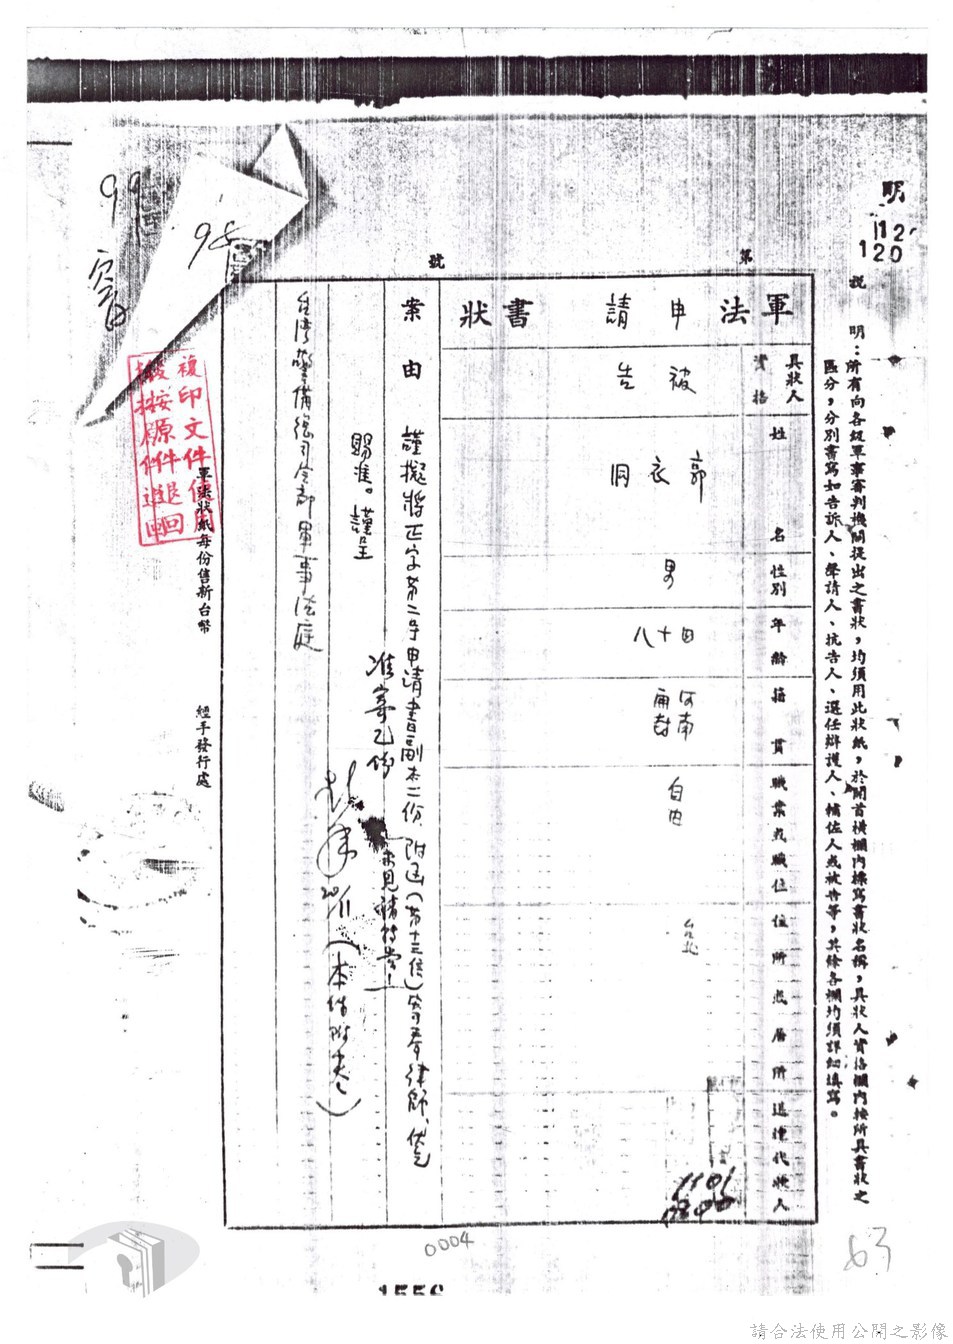 明
112
120
說
明：所有向各級軍事審判機關提出之書狀，均須用此狀紙，於開首橫欄內標寫書狀名稱，具狀人資格欄內按所具書狀之
區分，分別書寫如告訴人、聲請人、抗告人、選任辯護人、輔佐人或被告等，其餘各欄均須詳細填寫。
第
號
軍法申請書狀
具狀人
資格
被告
姓名
郭衣洞
性別
男
年齡
四十八
籍貫
河南
開封
職業或職位
自由
住所或居所
台北
送達代收人
案由
謹擬將正字第二号申請書副本一份，附函(第十三信)寄奉律師，恳
賜准。謹呈
台湾警備總司令部軍事法庭
准寄乙份
(本件附卷)
軍法狀紙每份售新台幣
經手發行處
複印文件使用
後按原件退回
99
94
0004
1556
63
請合法使用公開之影像